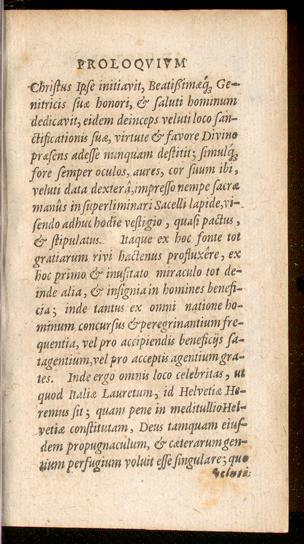 PROLOQVIVM
Christus Ipse initiavit, Beatißimæq́; Ge-
nitricis suæ honori, & saluti hominum
dedicavit, eidem deinceps veluti loco san-
ctificationis suæ, virtute & favore Divino
præsens adesse nunquam destitit; simulq́;
fore semper oculos, aures, cor suum ibi,
veluti data dexterâ, impresso nempe sacræ
manûs in superliminari Sacelli lapide, vi-
sendo adhuc hodie vestigio, quasi pactus,
& stipulatus. Itaque ex hoc fonte tot
gratiarum rivi hactenus profluxêre, ex
hoc primo & inusitato miraculo tot de-
inde alia, & insignia in homines benefi-
cia; inde tantus ex omni natione ho-
minum concursus & peregrinantium fre-
quentia, vel pro accipiendis beneficijs sa-
tagentium, vel pro acceptis agentium gra-
tes. Inde ergo omnis loco celebritas, ut
quod Italiæ Lauretum, id Helvetiæ He-
remus sit; quam pene in meditullio Hel-
vetiæ constitutam, Deus tamquam eius-
dem propugnaculum, & cæterarum gen-
tium perfugium voluit esse singulare; quo